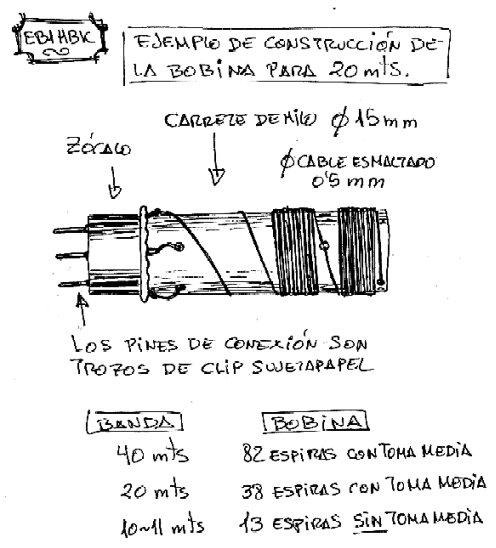 EB1HBK
EJEMPLO DE CONSTRUCCIÓN DE
LA BOBINA PARA 20 mts.
CARRETE DE HILO Ø 15 mm
ZÓCALO
Ø CABLE ESMALTADO
0'5 mm
LOS PINES DE CONEXIÓN SON
TROZOS DE CLIP SUJETAPAPEL
BANDA BOBINA
40 mts 82 ESPIRAS CON TOMA MEDIA
20 mts 38 ESPIRAS CON TOMA MEDIA
10~11 mts 13 ESPIRAS SIN TOMA MEDIA